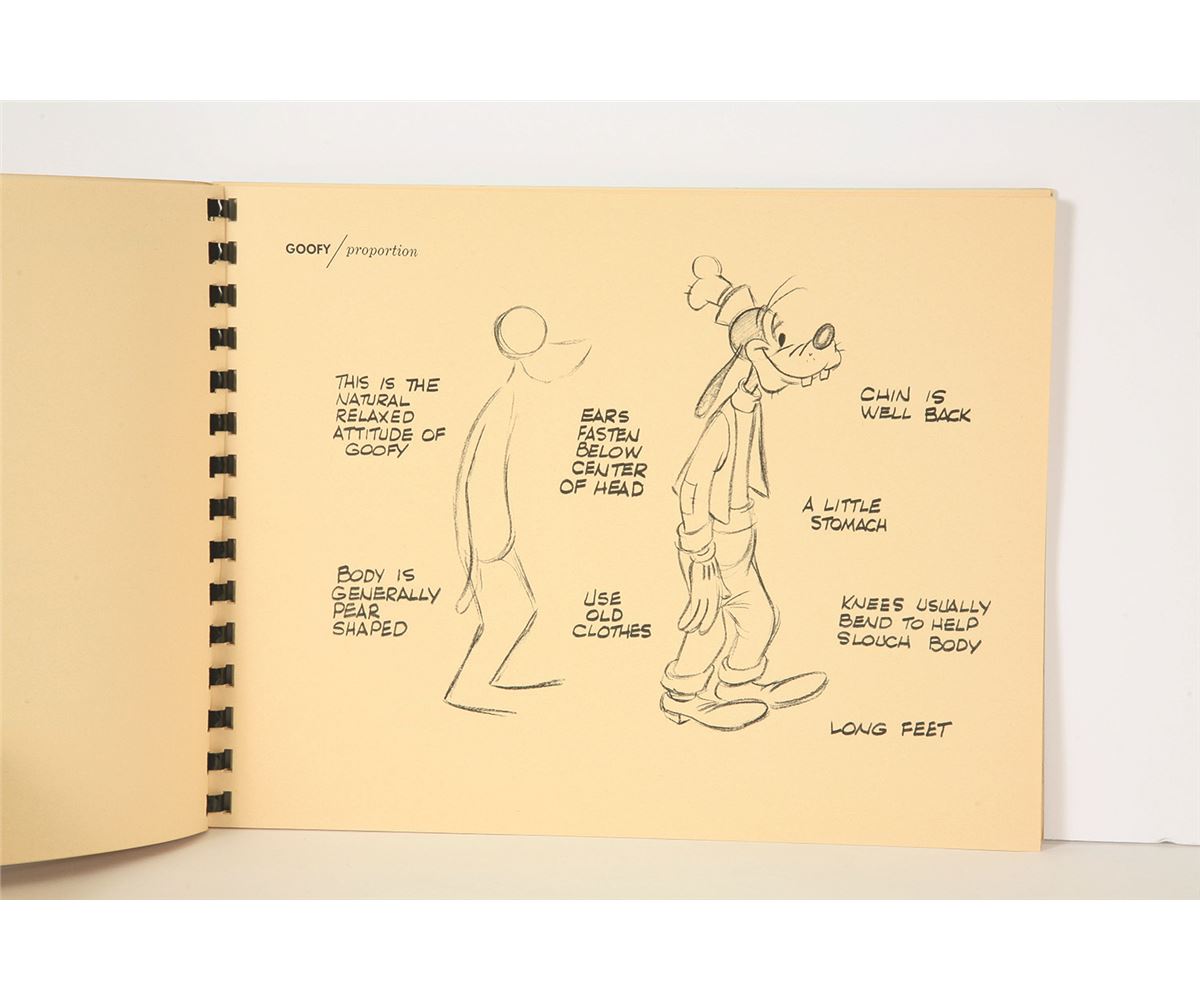 GOOFY/proportion
THIS IS THE
NATURAL
RELAXED
ATTITUDE OF
GOOFY
EARS
FASTEN
BELOW
CENTER
OF HEAD
CHIN IS
WELL BACK
A LITTLE
STOMACH
BODY IS
GENERALLY
PEAR
SHAPED
USE
OLD
CLOTHES
KNEES USUALLY
BEND TO HELP
SLOUCH BODY
LONG FEET